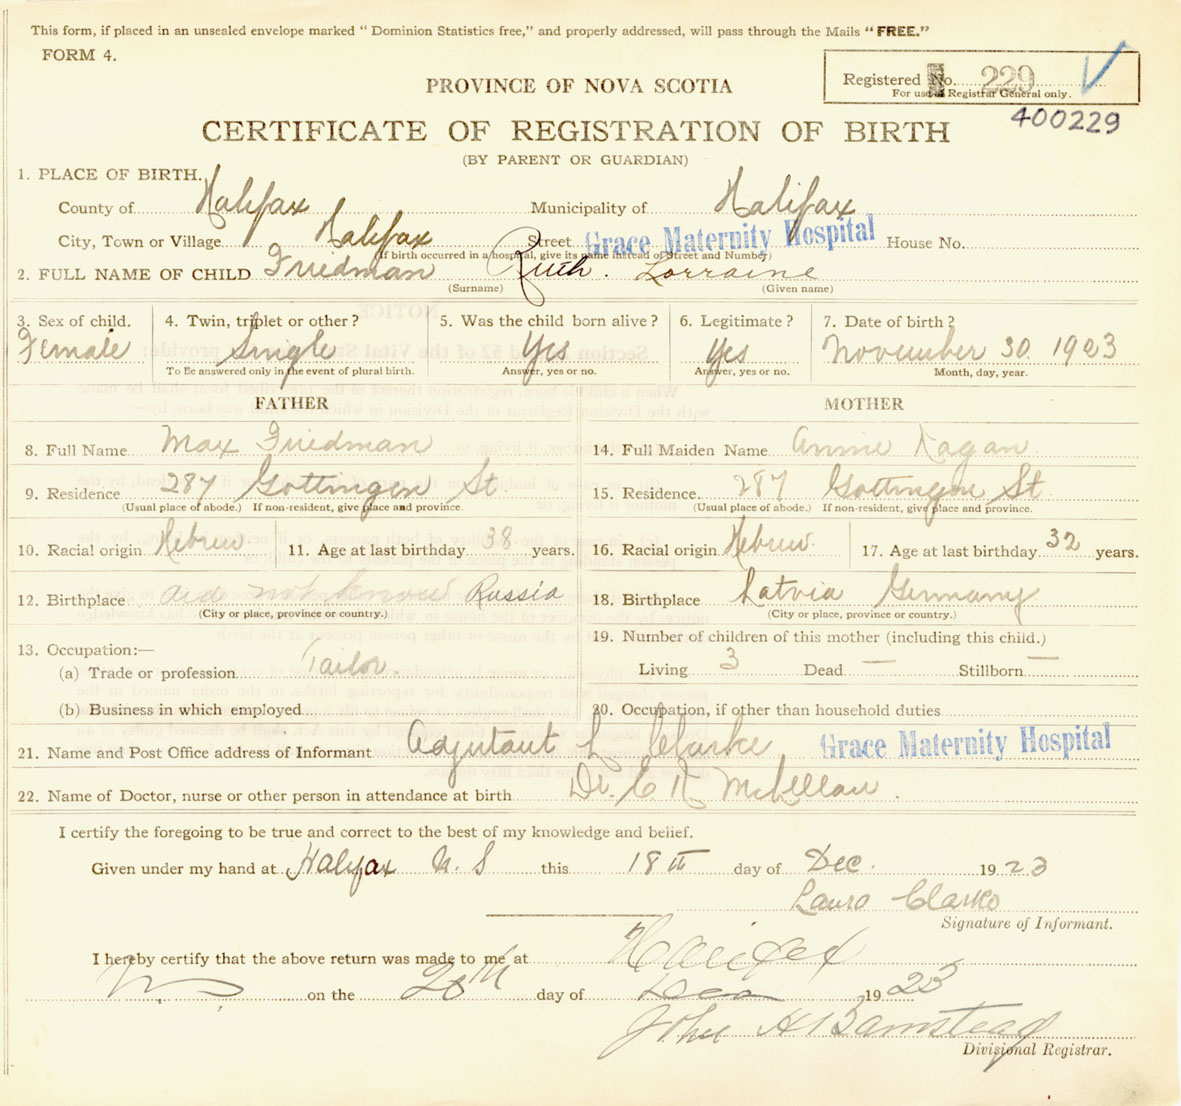 This form, if placed in an unsealed envelope marked “ Dominion Statistics free,” and properly addressed, will pass through the Mails “ FREE.”
FORM 4.
Registered No. 229
For use of Registrar General only.
400229
PROVINCE OF NOVA SCOTIA
CERTIFICATE OF REGISTRATION OF BIRTH
(BY PARENT OR GUARDIAN)
1. PLACE OF BIRTH.
County of Halifax Municipality of Halifax
City, Town or Village Halifax Street Grace Maternity Hospital House No.
(If birth occurred in a hospital, give its name instead of Street and Number)
2. FULL NAME OF CHILD Friedman Ruth. Lorraine
(Surname) (Given name)
3. Sex of child. 4. Twin, triplet or other ? 5. Was the child born alive ? 6. Legitimate ? 7. Date of birth ?
Female Single Yes Yes November 30 1923
To Be answered only in the event of plural birth. Answer, yes or no. Answer, yes or no. Month, day, year.
FATHER MOTHER
8. Full Name Max Friedman 14. Full Maiden Name Annie Kagan
9. Residence 287 Gottingen St 15. Residence. 287 Gottingen St
(Usual place of abode.) If non-resident, give place and province. (Usual place of abode.) If non-resident, give place and province.
10. Racial origin Hebrew 11. Age at last birthday 38 years. 16. Racial origin Hebrew. 17. Age at last birthday 32 years.
12. Birthplace did not know Russia 18. Birthplace Latvia Germany
(City or place, province or country.) (City or place, province or country.)
13. Occupation:— 19. Number of children of this mother (including this child.)
(a) Trade or profession Tailor. Living 3 Dead — Stillborn —
(b) Business in which employed 20. Occupation, if other than household duties
21. Name and Post Office address of Informant Adjutant L Clarke Grace Maternity Hospital
22. Name of Doctor, nurse or other person in attendance at birth Dr. C R McLellan.
I certify the foregoing to be true and correct to the best of my knowledge and belief.
Given under my hand at Halifax N. S this 18th day of Dec. 1923
Laura Clarke
Signature of Informant.
I hereby certify that the above return was made to me at Halifax
NS on the 20th day of Dec 1923
John H Barnstead
Divisional Registrar.